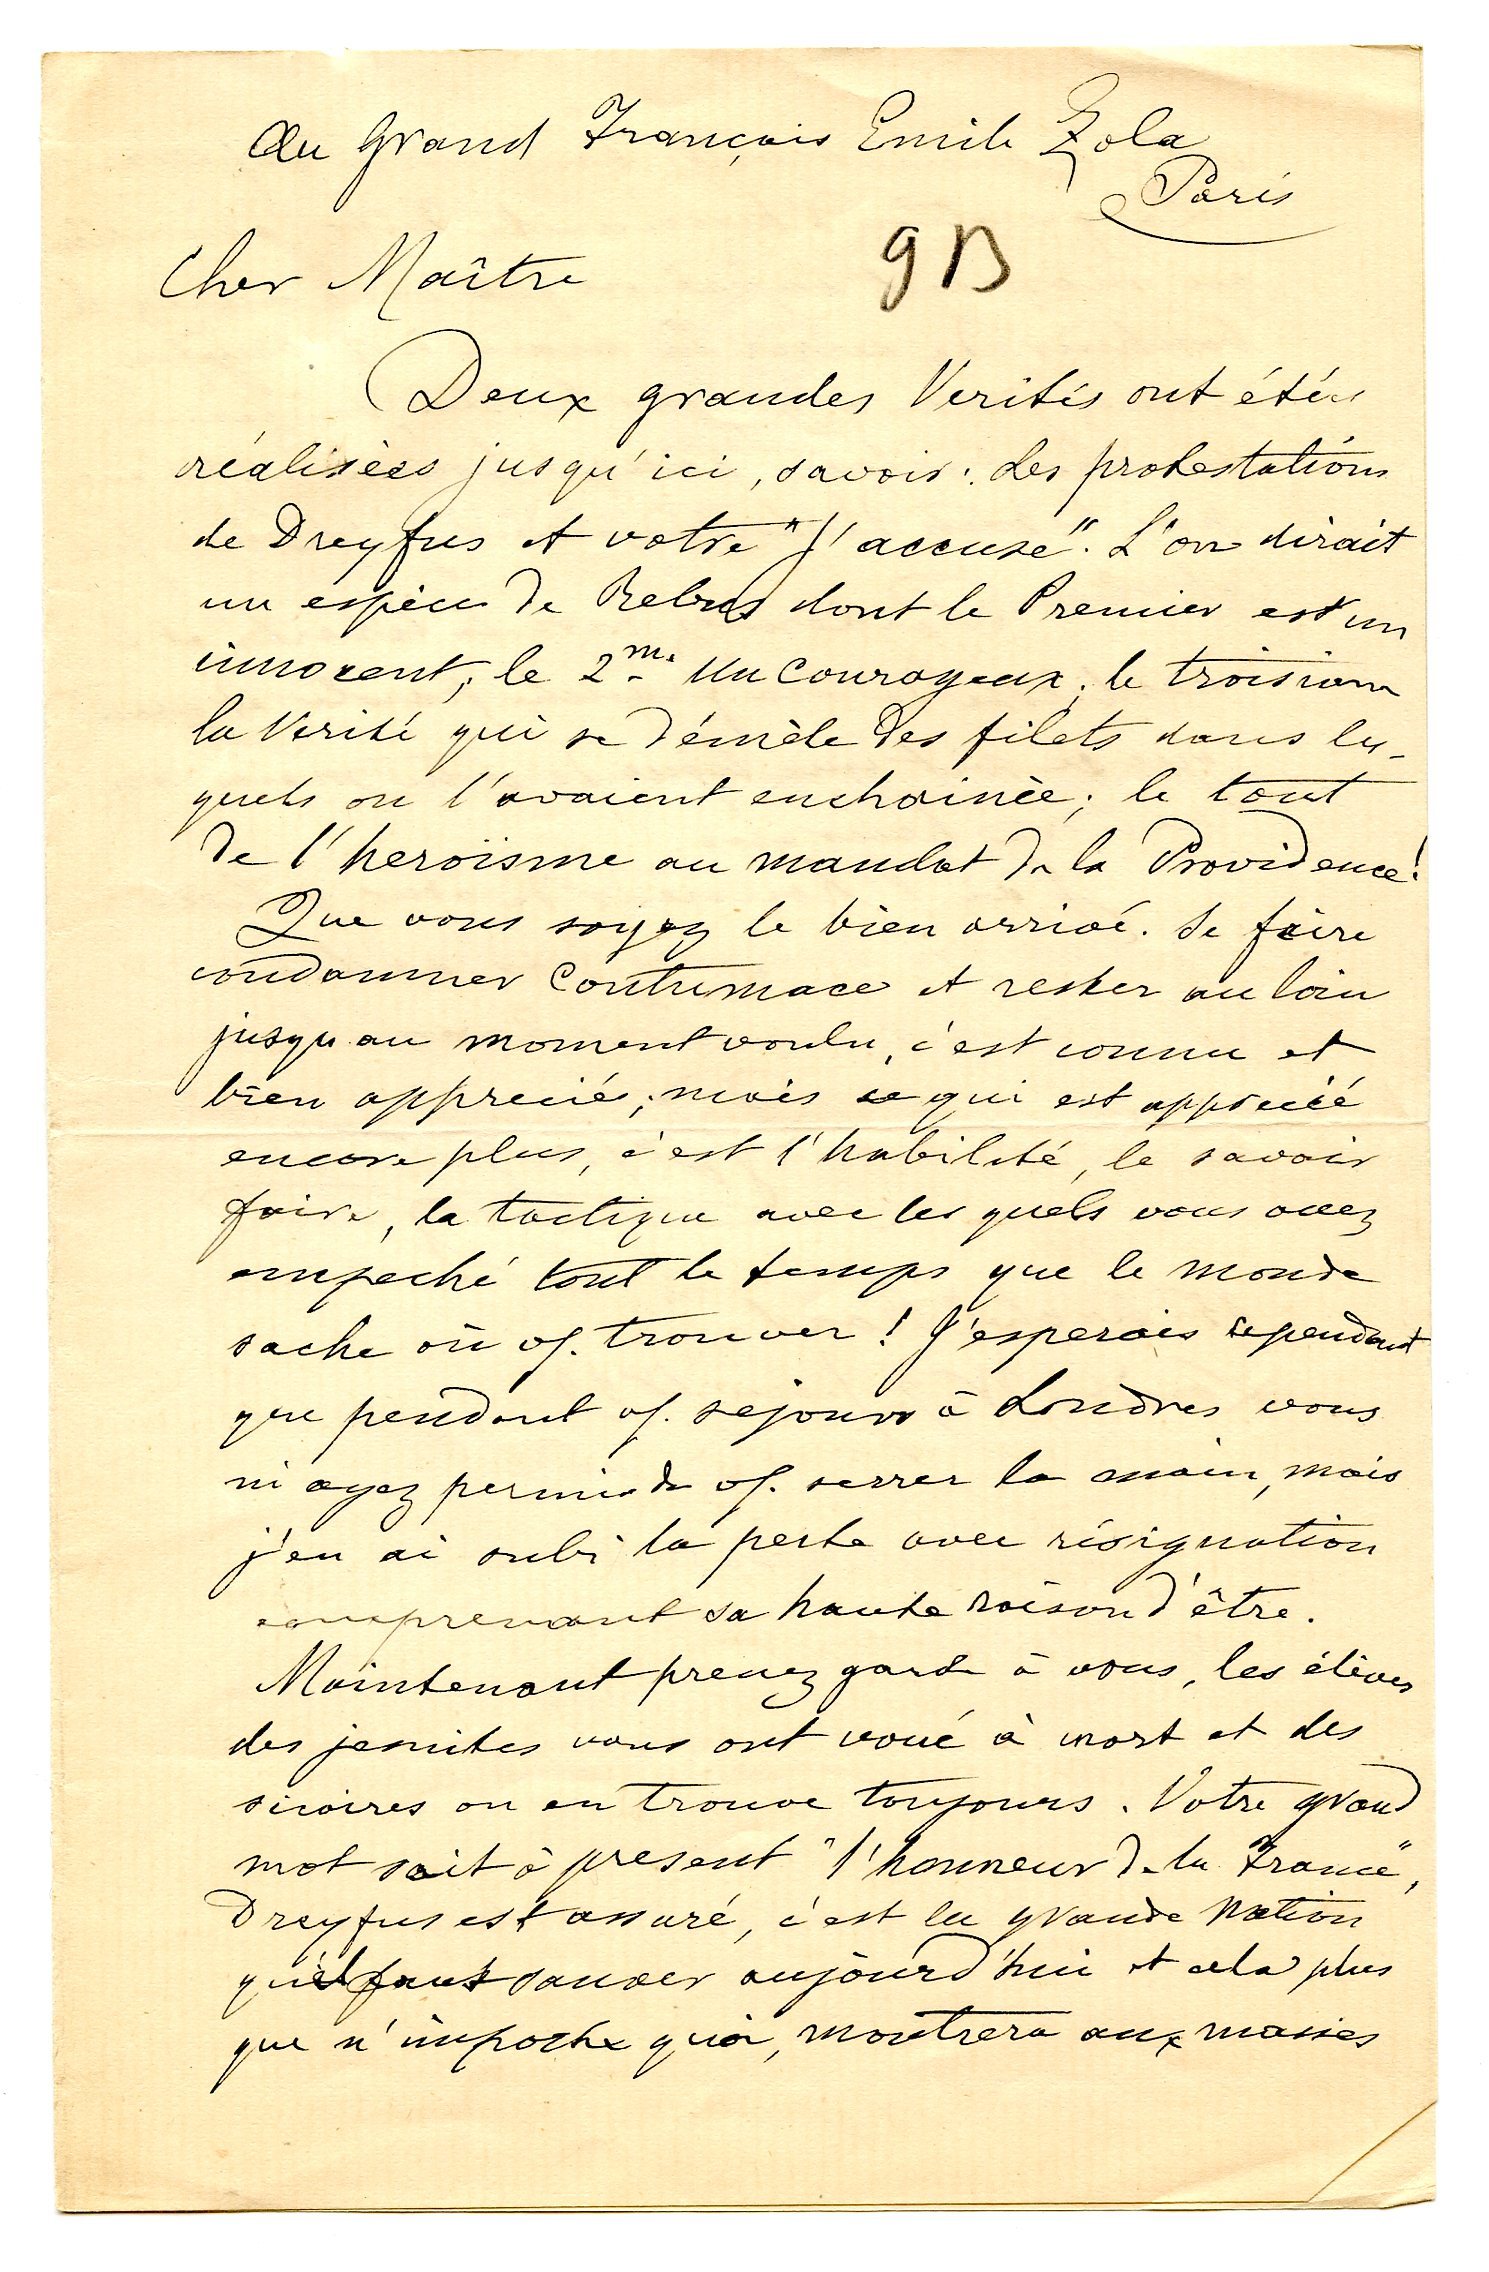 Au Grand Français Emile Zola
Paris
GB
Cher Maître
Deux grandes Verités ont étés
réalisèes jusqu'ici, savoir: Les protestations
de Dreyfus et votre "J'accuse". L'on dirait
un espèce de Rebus dont le Premier est un
innocent, le 2me un Courageux, le troisième
la Verité qui se démèle des filets dans les-
quels on l'avaient enchainèe; le tout
de l'heroïsme au mandat de la Providence!
Que vous soyez le bien arrivé. Se faire
condamner Contumace et rester au loin
jusqu au moment voulu, c'est connu et
bien apprecié; mais ce qui est apprécié
encore plus, c'est l'habilité, le savoir
faire, la tactique avec les quels vous avez
empeché tout le temps que le monde
sache où v. trouver! J'esperais cependant
que pendant v. sejour à Londres vous
m'ayez permis de v. serrer la main, mais
j'en ai subi la perte avec résignation
comprenant sa haute raison d'être.
Maintenant prenez garde à vous, les élèves
des jesuites vous ont voué à mort et des
sicaires on en trouve toujours. Votre grand
mot soit à présent "l'honneur de la France",
Dreyfus est assuré, c'est la grande Nation
qu'il faut sauver aujourd'hui et cela plus
que n'importe quoi, montrera aux masses